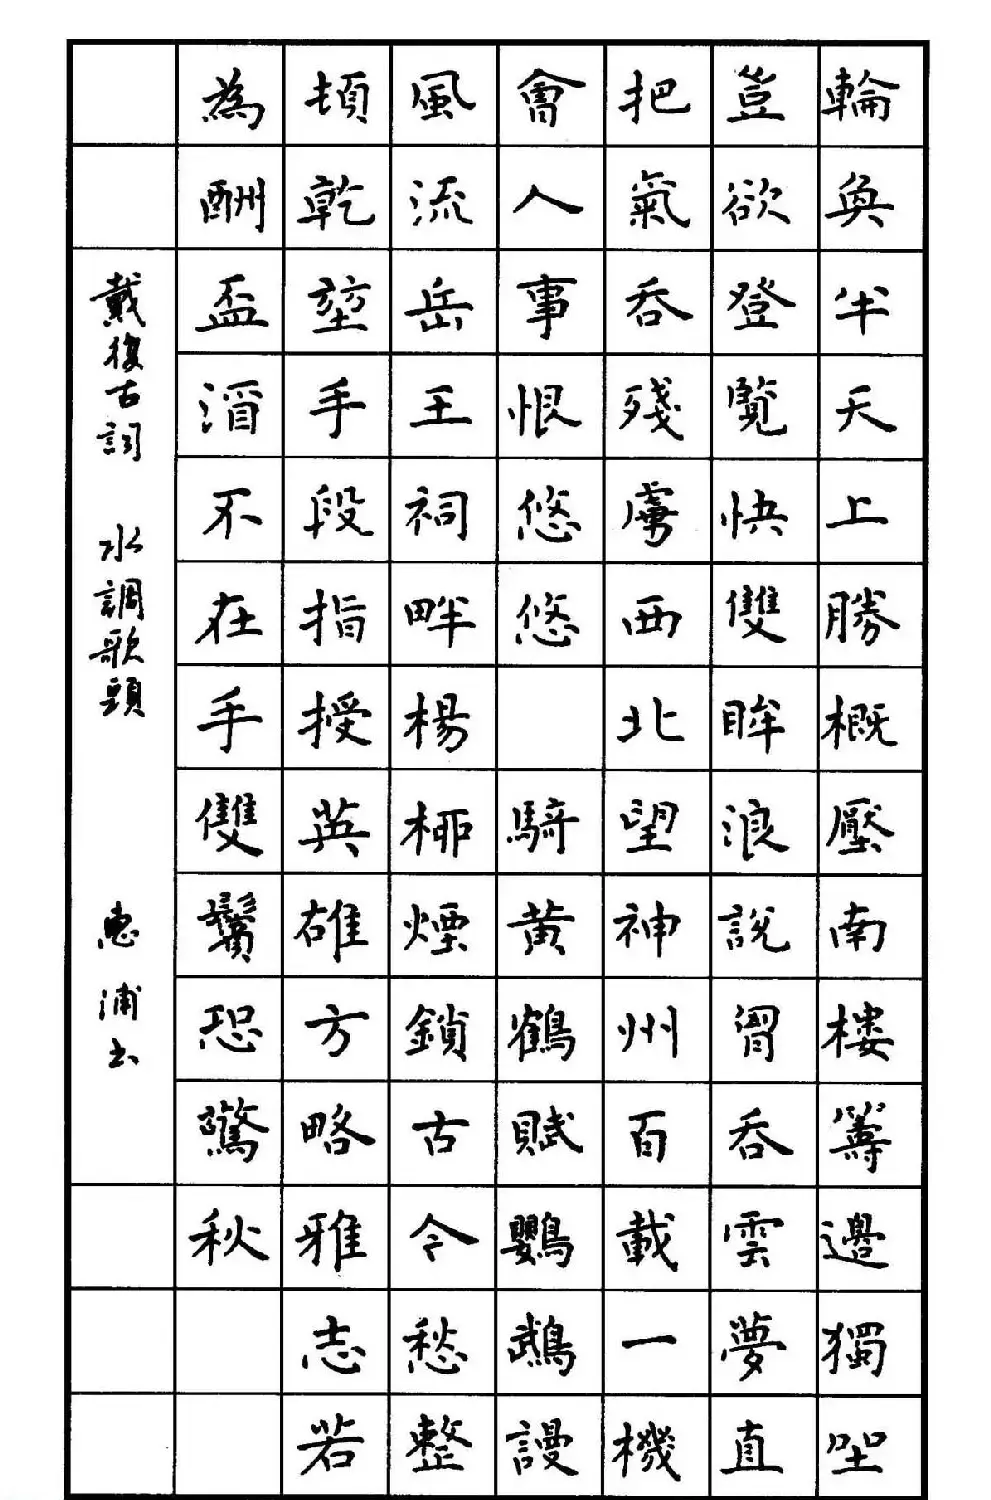 輪奐半天上勝概壓南樓籌邊獨坐
豈欲登覽快雙眸浪說胷吞雲夢直
把氣吞殘虜西北望神州百載一機
會人事恨悠悠 騎黃鶴賦鸚鵡謾
風流岳王祠畔楊柳煙鎖古今愁整
頓乾堃手段指授英雄方略雅志若
為酬盃酒不在手雙鬢恐驚秋
戴復古詞 水調歌頭 惠浦书